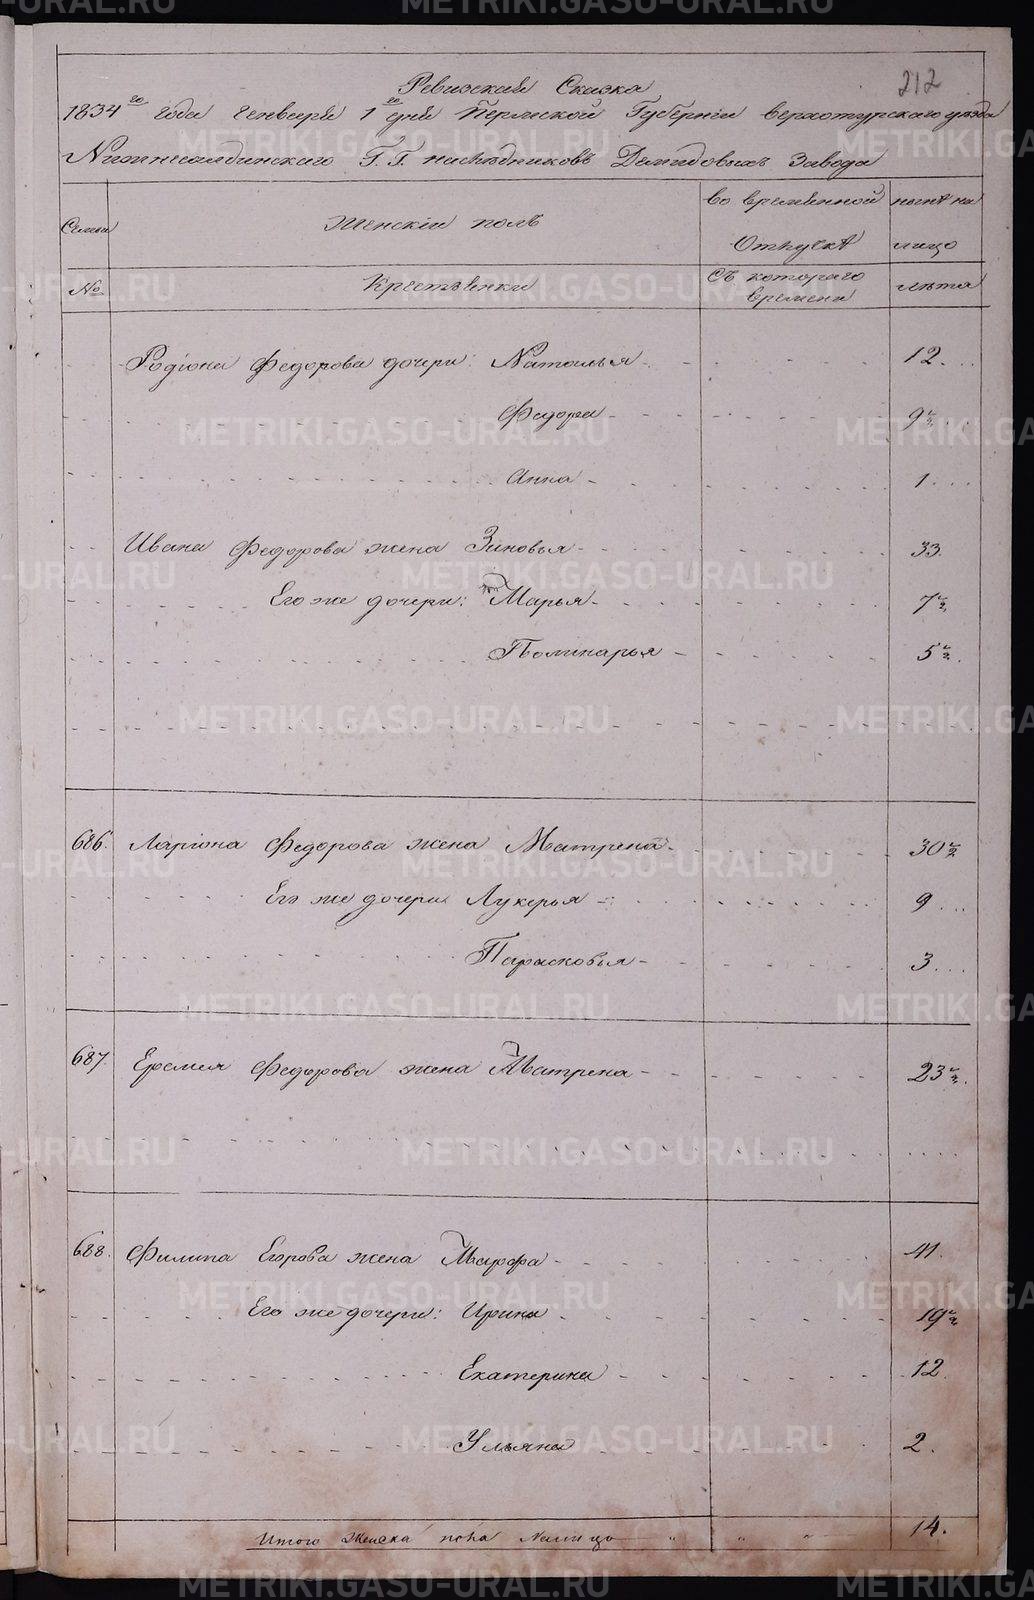 212
Ревизская Сказка
1834го года Генваря 1го дня Пермской Губернiи верхотурскаго уезда
Нижнесалдинскаго Г. Г. наследниковъ Демидовыхъ Завода
Семьи
Женскiй полъ
во временной
ныне на
Отлучке
лицо
№
Крестьянки
Съ котораго
лета
времени
Родiона Федорова дочери: Наталья 12.
Федора 9 1/2
Анна 1
Ивана Федорова жена Зиновья 33.
Его же дочери: Марья 7 1/2
Полинарья 5 1/2.
686. Ларiона Федорова жена Матрена 30 1/2
Его же дочери Лукерья 9
Парасковья 3
687. Еремея Федорова жена Матрена 23 1/2.
688. Филипа Егорова жена Марфа 41.
Его же дочери: Ирина 19 1/2
Екатерина 12
Ульяна 2.
Итого Женска пола Налицо " " " 14.
METRIKI.GASO-URAL.RU